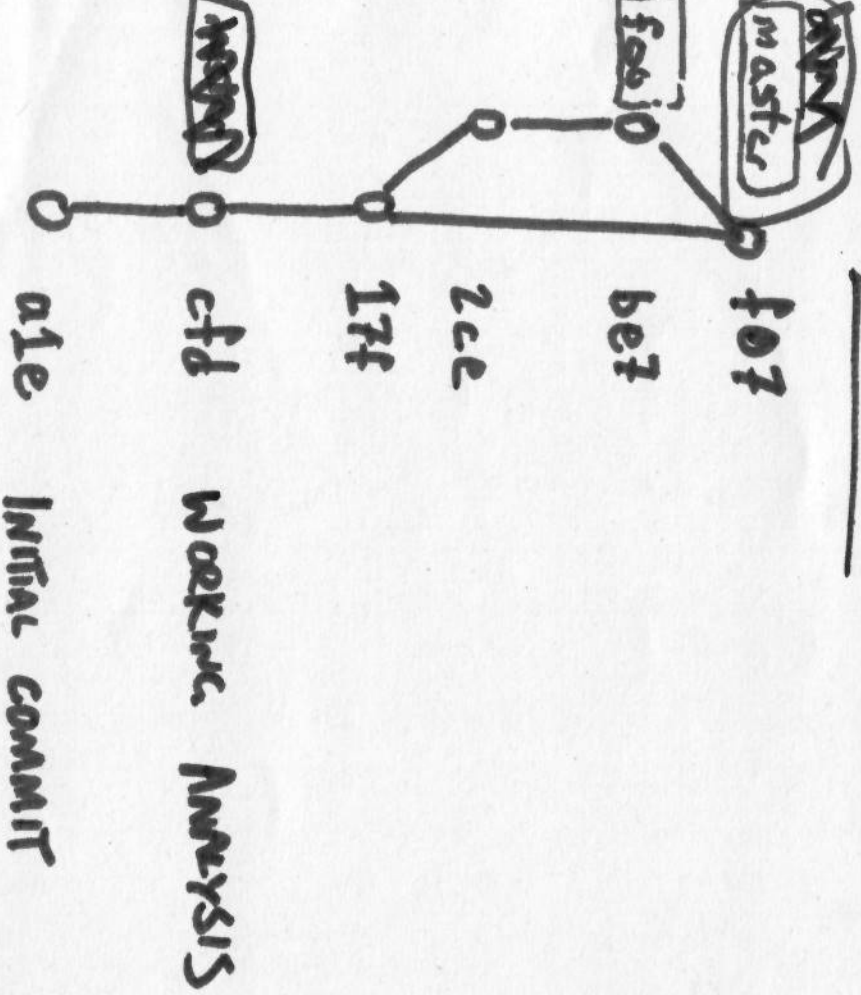 master
f07
foo
be7
2ce
17f
cfd WORKING ANALYSIS
a1e INITIAL COMMIT